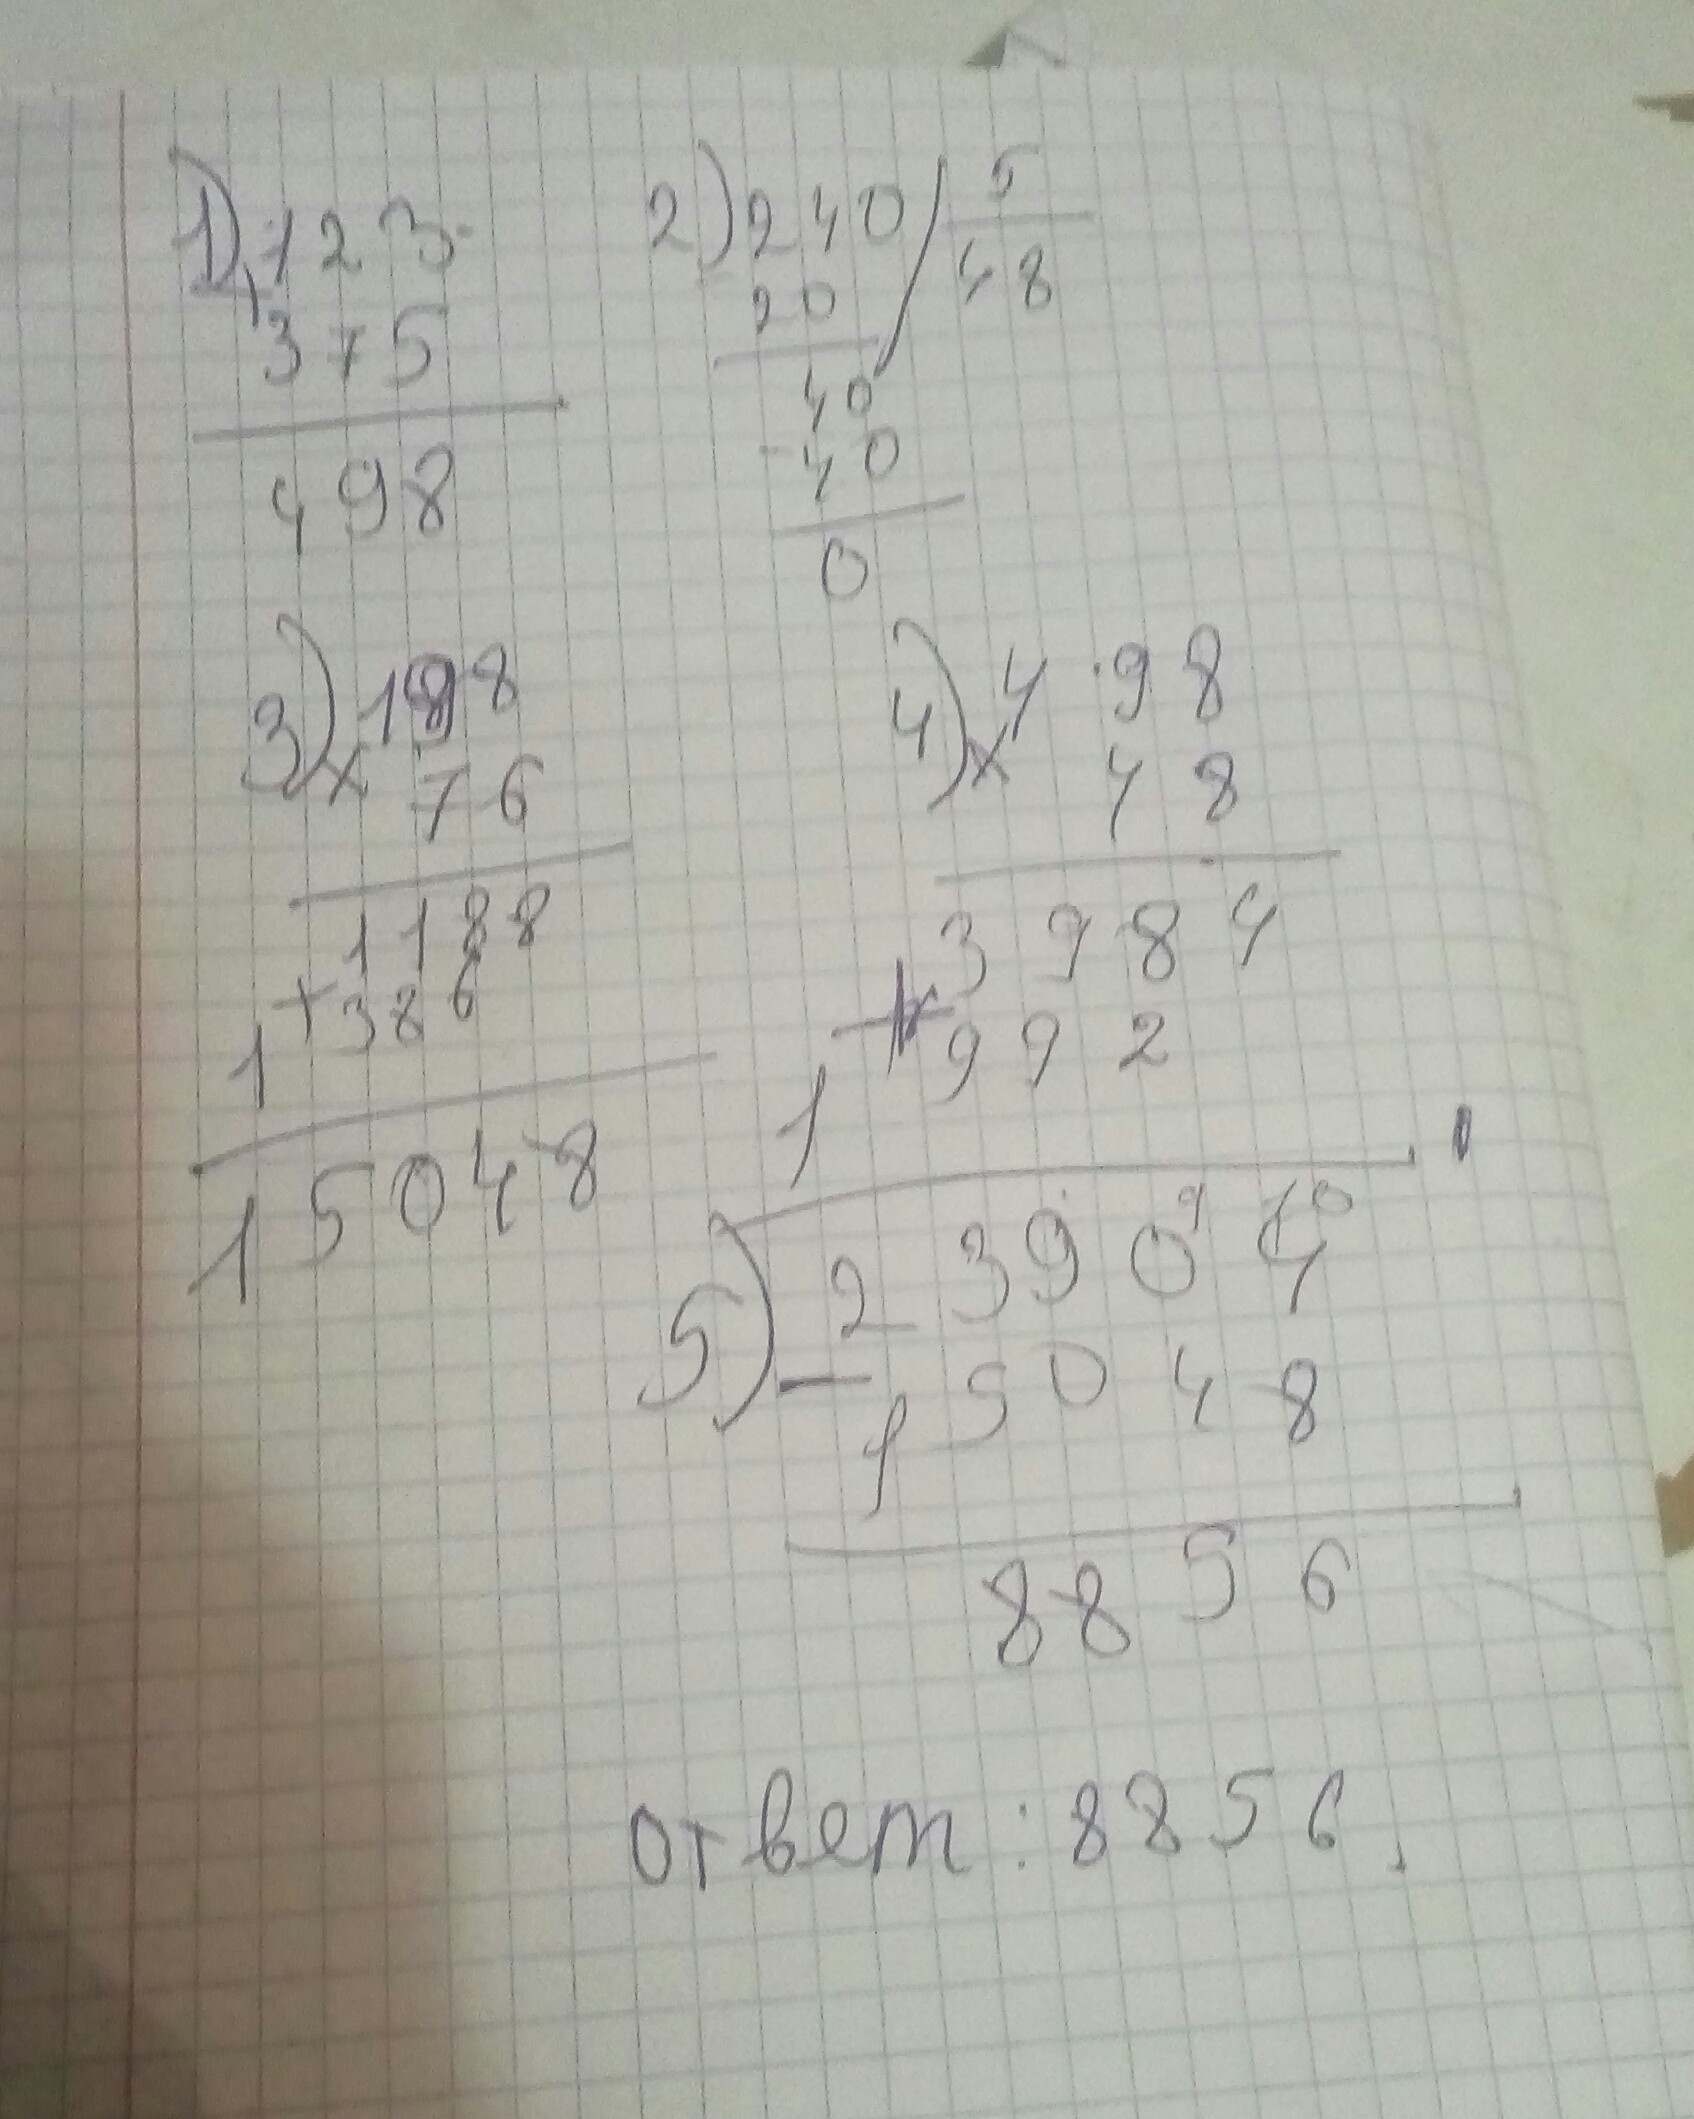 1) 123
+
375
498
2) 240 / 5
20 48
40
- 40
0
3) 198
× 76
1188
+ 386
1
15048
4) 498
× 48
3984
+ 992
1
9 10
5) 23904
- 15048
8856
ответ: 8856.